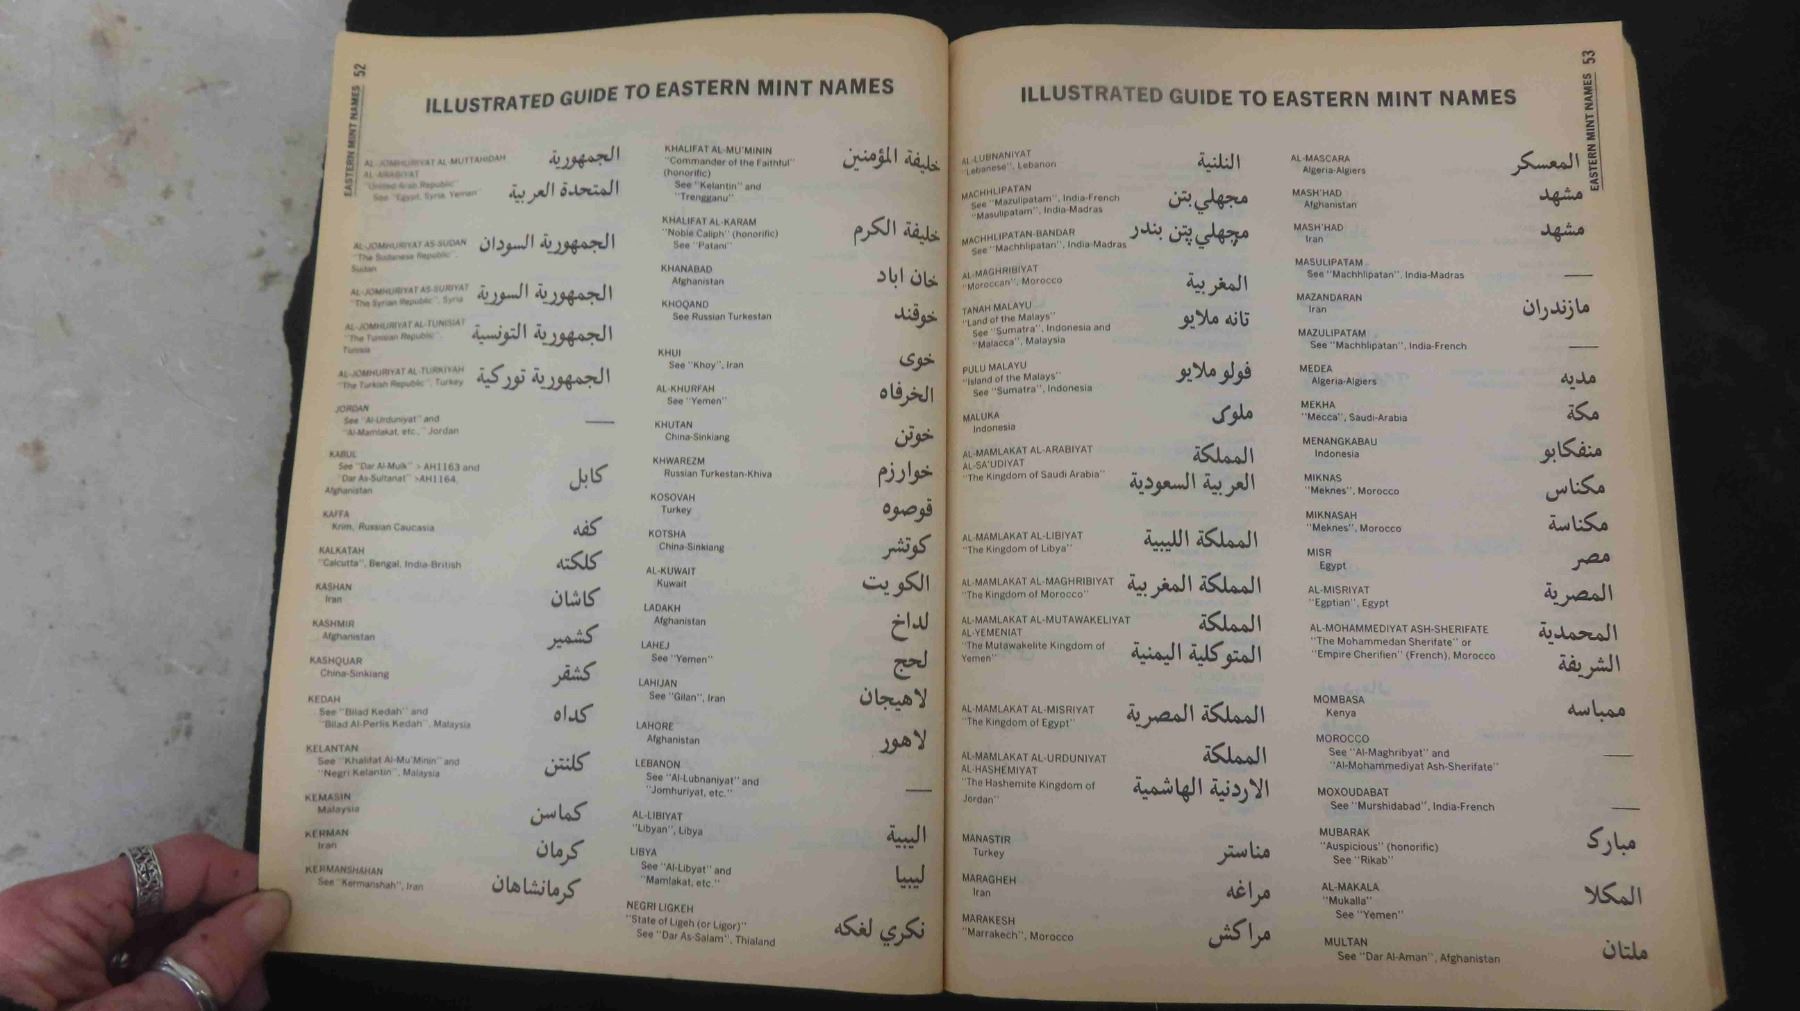 EASTERN MINT NAMES 52
ILLUSTRATED GUIDE TO EASTERN MINT NAMES
AL-JOMHURIYAT AL-MUTTAHIDAH الجمهورية
AL-ARABIYAT
"United Arab Republic" المتحدة العربية
See "Egypt, Syria, Yemen"
AL-JOMHURIYAT AS-SUDAN الجمهورية السودان
"The Sudanese Republic",
Sudan
AL-JOMHURIYAT AS-SURIYAT الجمهورية السورية
"The Syrian Republic", Syria
AL-JOMHURIYAT AL-TUNISIAT الجمهورية التونسية
"The Tunisian Republic",
Tunisia
AL-JOMHURIYAT AL-TURKIYAH الجمهورية توركية
"The Turkish Republic", Turkey
JORDAN
See "Al-Urduniyat" and —
"Al-Mamlakat, etc.," Jordan
KABUL
See "Dar Al-Mulk" > AH1163 and كابل
"Dar As-Sultanat" >AH1164,
Afghanistan
KAFFA كفه
Krim, Russian Caucasia
KALKATAH كلكته
"Calcutta", Bengal, India-British
KASHAN كاشان
Iran
KASHMIR كشمير
Afghanistan
KASHQUAR كشقر
China-Sinkiang
KEDAH
See "Bilad Kedah" and كداه
"Bilad Al-Perlis Kedah", Malaysia
KELANTAN
See "Khalifat Al-Mu'Minin" and كلنتن
"Negri Kelantin", Malaysia
KEMASIN كماسن
Malaysia
KERMAN كرمان
Iran
KERMANSHAHAN كرمانشاهان
See "Kermanshah", Iran
KHALIFAT AL-MU'MININ خليفة المؤمنين
"Commander of the Faithful"
(honorific)
See "Kelantin" and
"Trengganu"
KHALIFAT AL-KARAM خليفة الكرم
"Noble Caliph" (honorific)
See "Patani"
KHANABAD خان اباد
Afghanistan
KHOQAND خوقند
See Russian Turkestan
KHUI خوى
See "Khoy", Iran
AL-KHURFAH الخرفاه
See "Yemen"
KHUTAN خوتن
China-Sinkiang
KHWAREZM خوارزم
Russian Turkestan-Khiva
KOSOVAH قوصوه
Turkey
KOTSHA كوتشر
China-Sinkiang
AL-KUWAIT الكويت
Kuwait
LADAKH لداخ
Afghanistan
LAHEJ لحج
See "Yemen"
LAHIJAN لاهيجان
See "Gilan", Iran
LAHORE لاهور
Afghanistan
LEBANON
See "Al-Lubnaniyat" and —
"Jomhuriyat, etc."
AL-LIBIYAT الييبية
"Libyan", Libya
LIBYA ليبيا
See "Al-Libyat" and
"Mamlakat, etc."
NEGRI LIGKEH
"State of Ligeh (or Ligor)" نكري لغكه
See "Dar As-Salam", Thialand
EASTERN MINT NAMES 53
ILLUSTRATED GUIDE TO EASTERN MINT NAMES
AL-LUBNANIYAT النلنية
"Lebanese", Lebanon
MACHHLIPATAN مجهلي بتن
See "Mazulipatam", India-French
"Masulipatam", India-Madras
MACHHLIPATAN-BANDAR مچهلي پتن بندر
See "Machhlipatan", India-Madras
AL-MAGHRIBIYAT المغربية
"Moroccan", Morocco
TANAH MALAYU تانه ملايو
"Land of the Malays"
See "Sumatra", Indonesia and
"Malacca", Malaysia
PULU MALAYU فولو ملايو
"Island of the Malays"
See "Sumatra", Indonesia
MALUKA ملوكى
Indonesia
AL-MAMLAKAT AL-ARABIYAT المملكة
AL-SA'UDIYAT
"The Kingdom of Saudi Arabia" العربية السعودية
AL-MAMLAKAT AL-LIBIYAT المملكة الليبية
"The Kingdom of Libya"
AL-MAMLAKAT AL-MAGHRIBIYAT المملكة المغربية
"The Kingdom of Morocco"
AL-MAMLAKAT AL-MUTAWAKELIYAT المملكة
AL-YEMENIAT
"The Mutawakelite Kingdom of المتوكلية اليمنية
Yemen"
AL-MAMLAKAT AL-MISRIYAT المملكة المصرية
"The Kingdom of Egypt"
AL-MAMLAKAT AL-URDUNIYAT المملكة
AL-HASHEMIYAT
"The Hashemite Kingdom of الاردنية الهاشمية
Jordan"
MANASTIR مناستر
Turkey
MARAGHEH مراغه
Iran
MARAKESH مراكش
"Marrakech", Morocco
AL-MASCARA المعسكر
Algeria-Algiers
MASH'HAD مشهد
Afghanistan
MASH'HAD مشهد
Iran
MASULIPATAM
See "Machhlipatan", India-Madras —
MAZANDARAN مازندران
Iran
MAZULIPATAM
See "Machhlipatan", India-French —
MEDEA مديه
Algeria-Algiers
MEKHA مكة
"Mecca", Saudi-Arabia
MENANGKABAU منفكابو
Indonesia
MIKNAS مكناس
"Meknes", Morocco
MIKNASAH مكناسة
"Meknes", Morocco
MISR مصر
Egypt
AL-MISRIYAT المصرية
"Egptian", Egypt
AL-MOHAMMEDIYAT ASH-SHERIFATE المحمدية
"The Mohammedan Sherifate" or
"Empire Cherifien" (French), Morocco الشريفة
MOMBASA ممباسه
Kenya
MOROCCO
See "Al-Maghribyat" and —
"Al-Mohammediyat Ash-Sherifate"
MOXOUDABAT
See "Murshidabad", India-French —
MUBARAK مبارك
"Auspicious" (honorific)
See "Rikab"
AL-MAKALA المكلا
"Mukalla"
See "Yemen"
MULTAN ملتان
See "Dar Al-Aman", Afghanistan